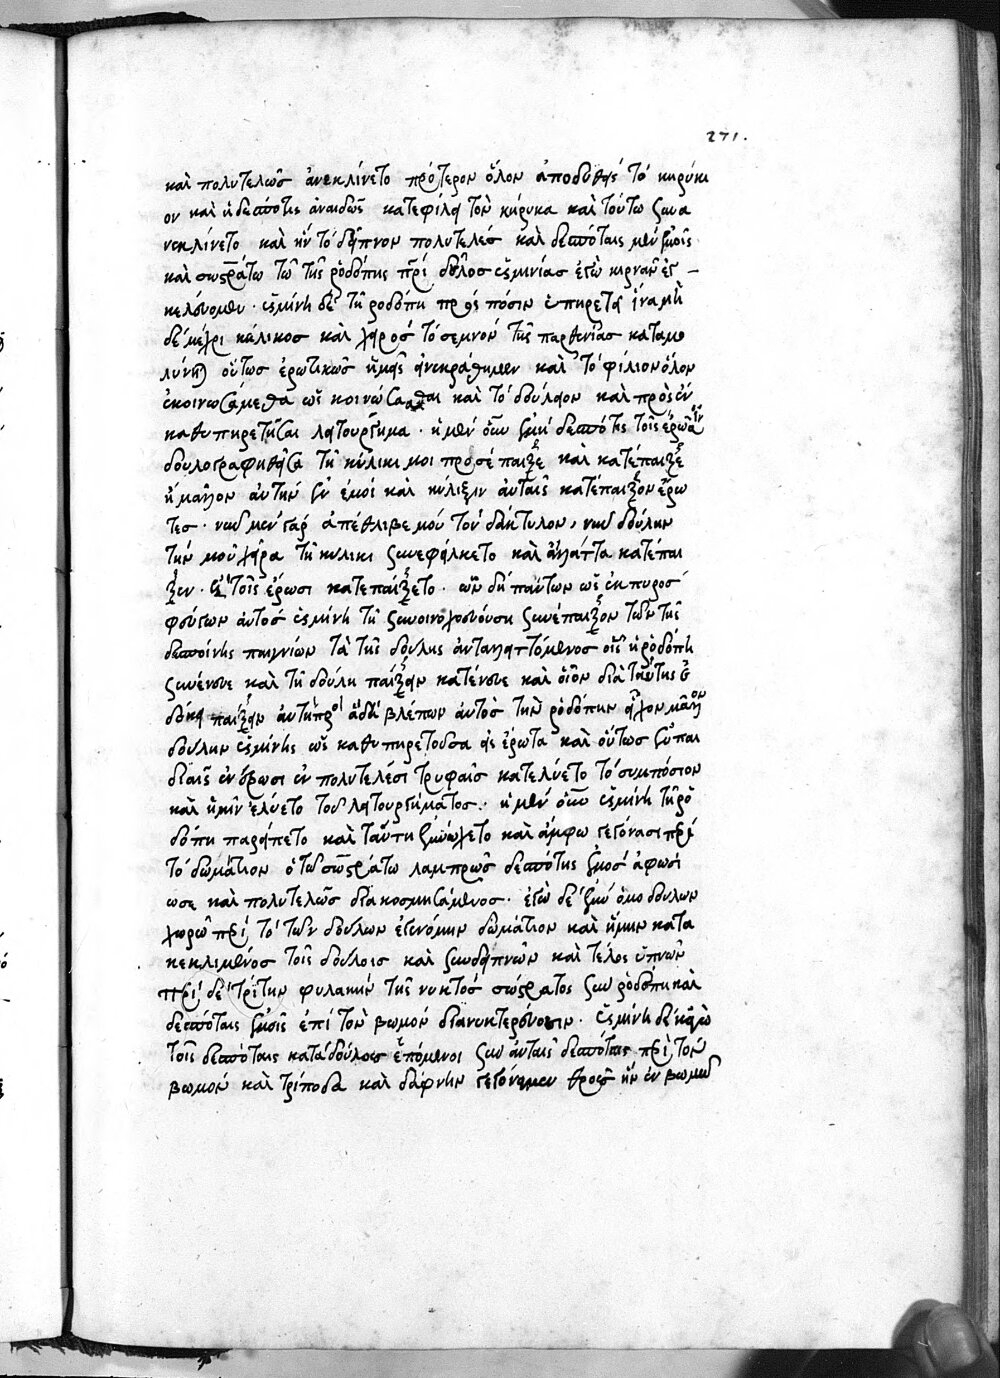 271.
καὶ πολυτελῶς ἀνεκλίνετο πρότερον ὅλον ἀποδυθεὶς τὸ κηρύκι
ον καὶ ἡ δεσπότις ἀναιδῶς κατεφίλει τὸν κήρυκα καὶ τούτω συνα
νεκλίνετο καὶ ἦν τὸ δεῖπνον πολυτελὲς καὶ δεσπόταις μὲν ἐμοῖς
καὶ σωστράτω τῶ τῆς ῥοδόπης πατρὶ δοῦλος ὑσμινίας ἐγὼ κιρνᾶν ἐ
κελευόμην · ὑσμίνη δὲ τῆ ροδόπη πρὸς πόσιν ὑπηρετεῖ ἵνα μὴ
δὲ μέχρι κύλικος καὶ χειρὸς τὸ σεμνὸν τῆς παρθενίας καταμο
λύνηται οὕτως ἐρωτικῶς ἡμεῖς ἀνεκράθημεν καὶ τὸ φίλιον ὅλον
ἐκοινωσάμεθα ὡς κοινώσασθαι καὶ τὸ δούλειον καὶ πρὸς ἓν
καθυπηρετῆσαι λειτούργημα · ἡ μὲν οὖν ἐμὴ δεσπότις τοῖς ἔρωσιν
δουλογραφηθεῖσα τῆ κύλικι μοι προσέπαιξε καὶ κατέπαιξε
ἢ μᾶλλον αὐτὴν σὺν ἐμοὶ καὶ κύλιξιν αὐταῖς κατέπαιξον ἔρω
τες · νῦν μὲν γὰρ ἀπέθλιβέ μου τὸν δάκτυλον, νῦν δούλην
τήν μου χεῖρα τῆ κύλικι συνεφείλκετο καὶ ἀλλάττα κατέπαι
ξεν · ἃ τοῖς ἔρωσι κατεπαίζετο · ὧν δὴ πάντων ὡς ἐκ πυρὸς
φεύγων αὐτὸς ὑσμίνη τῆ συνοινοχοούση συνέπαιζον τῶν τῆς
δεσποίνης παιγνίων τὰ τῆς δούλης ἀνταλλαττόμενος οἷς ἡ ῥοδόπη
συνένευε καὶ τῆ δούλη παίζειν κατένευε καὶ οἷον διὰ ταύτης
δόκει παίζειν αὐτή πρὸς ἃ δὴ βλέπων αὐτὸς τὴν ῥοδόπην εἶχον μᾶλλον
δούλην ὑσμίνης ὡς καθυπηρετοῦσα εἰς ἔρωτα καὶ οὕτως εὐπαι
διαις ἐν ἔρωσι ἐν πολυτελέσι τρυφαῖς κατελύετο τὸ συμπόσιον
καὶ ἡμῖν ἐλύετο τοῦ λειτουργήματος · ἡ μὲν οὖν ὑσμίνη τῆ ῥο
δόπη παρείπετο καὶ ταύτη συνείχετο καὶ ἄμφω γεγόνασι περὶ
τὸ δωμάτιον ὁ τῶ σωστράτω λαμπρῶς δεσπότης ἐμὸς ἀφωσι
ωσε καὶ πολυτελῶς διακοσμησάμενος · ἐγὼ δὲ σὺν ὁμοδούλων
χορῶ περὶ τὸ τῶν δούλων ἐγενόμην δωμάτιον καὶ ἤμην κατα
κεκλιμένος τοῖς δούλοις καὶ συνδειπνῶν καὶ τέλος ὑπνῶν
περὶ δὲ τρίτην φυλακὴν τῆς νυκτὸς σώστρατος σὺν ῥοδόπη καὶ
δεσπόταις ἐμοῖς ἐπὶ τὸν βωμὸν διανυκτερεύουσιν · ὑσμίνη δὲ κἀγὼ
τοῖς δεσπόταις κατὰ δούλους ἑπόμενοι σὺν αὐταῖς δεσπόταις περὶ τὸν
βωμὸν καὶ τρίποδα καὶ δάφνην γεγόναμεν θροῦς ἦν ἐν βωμῶ